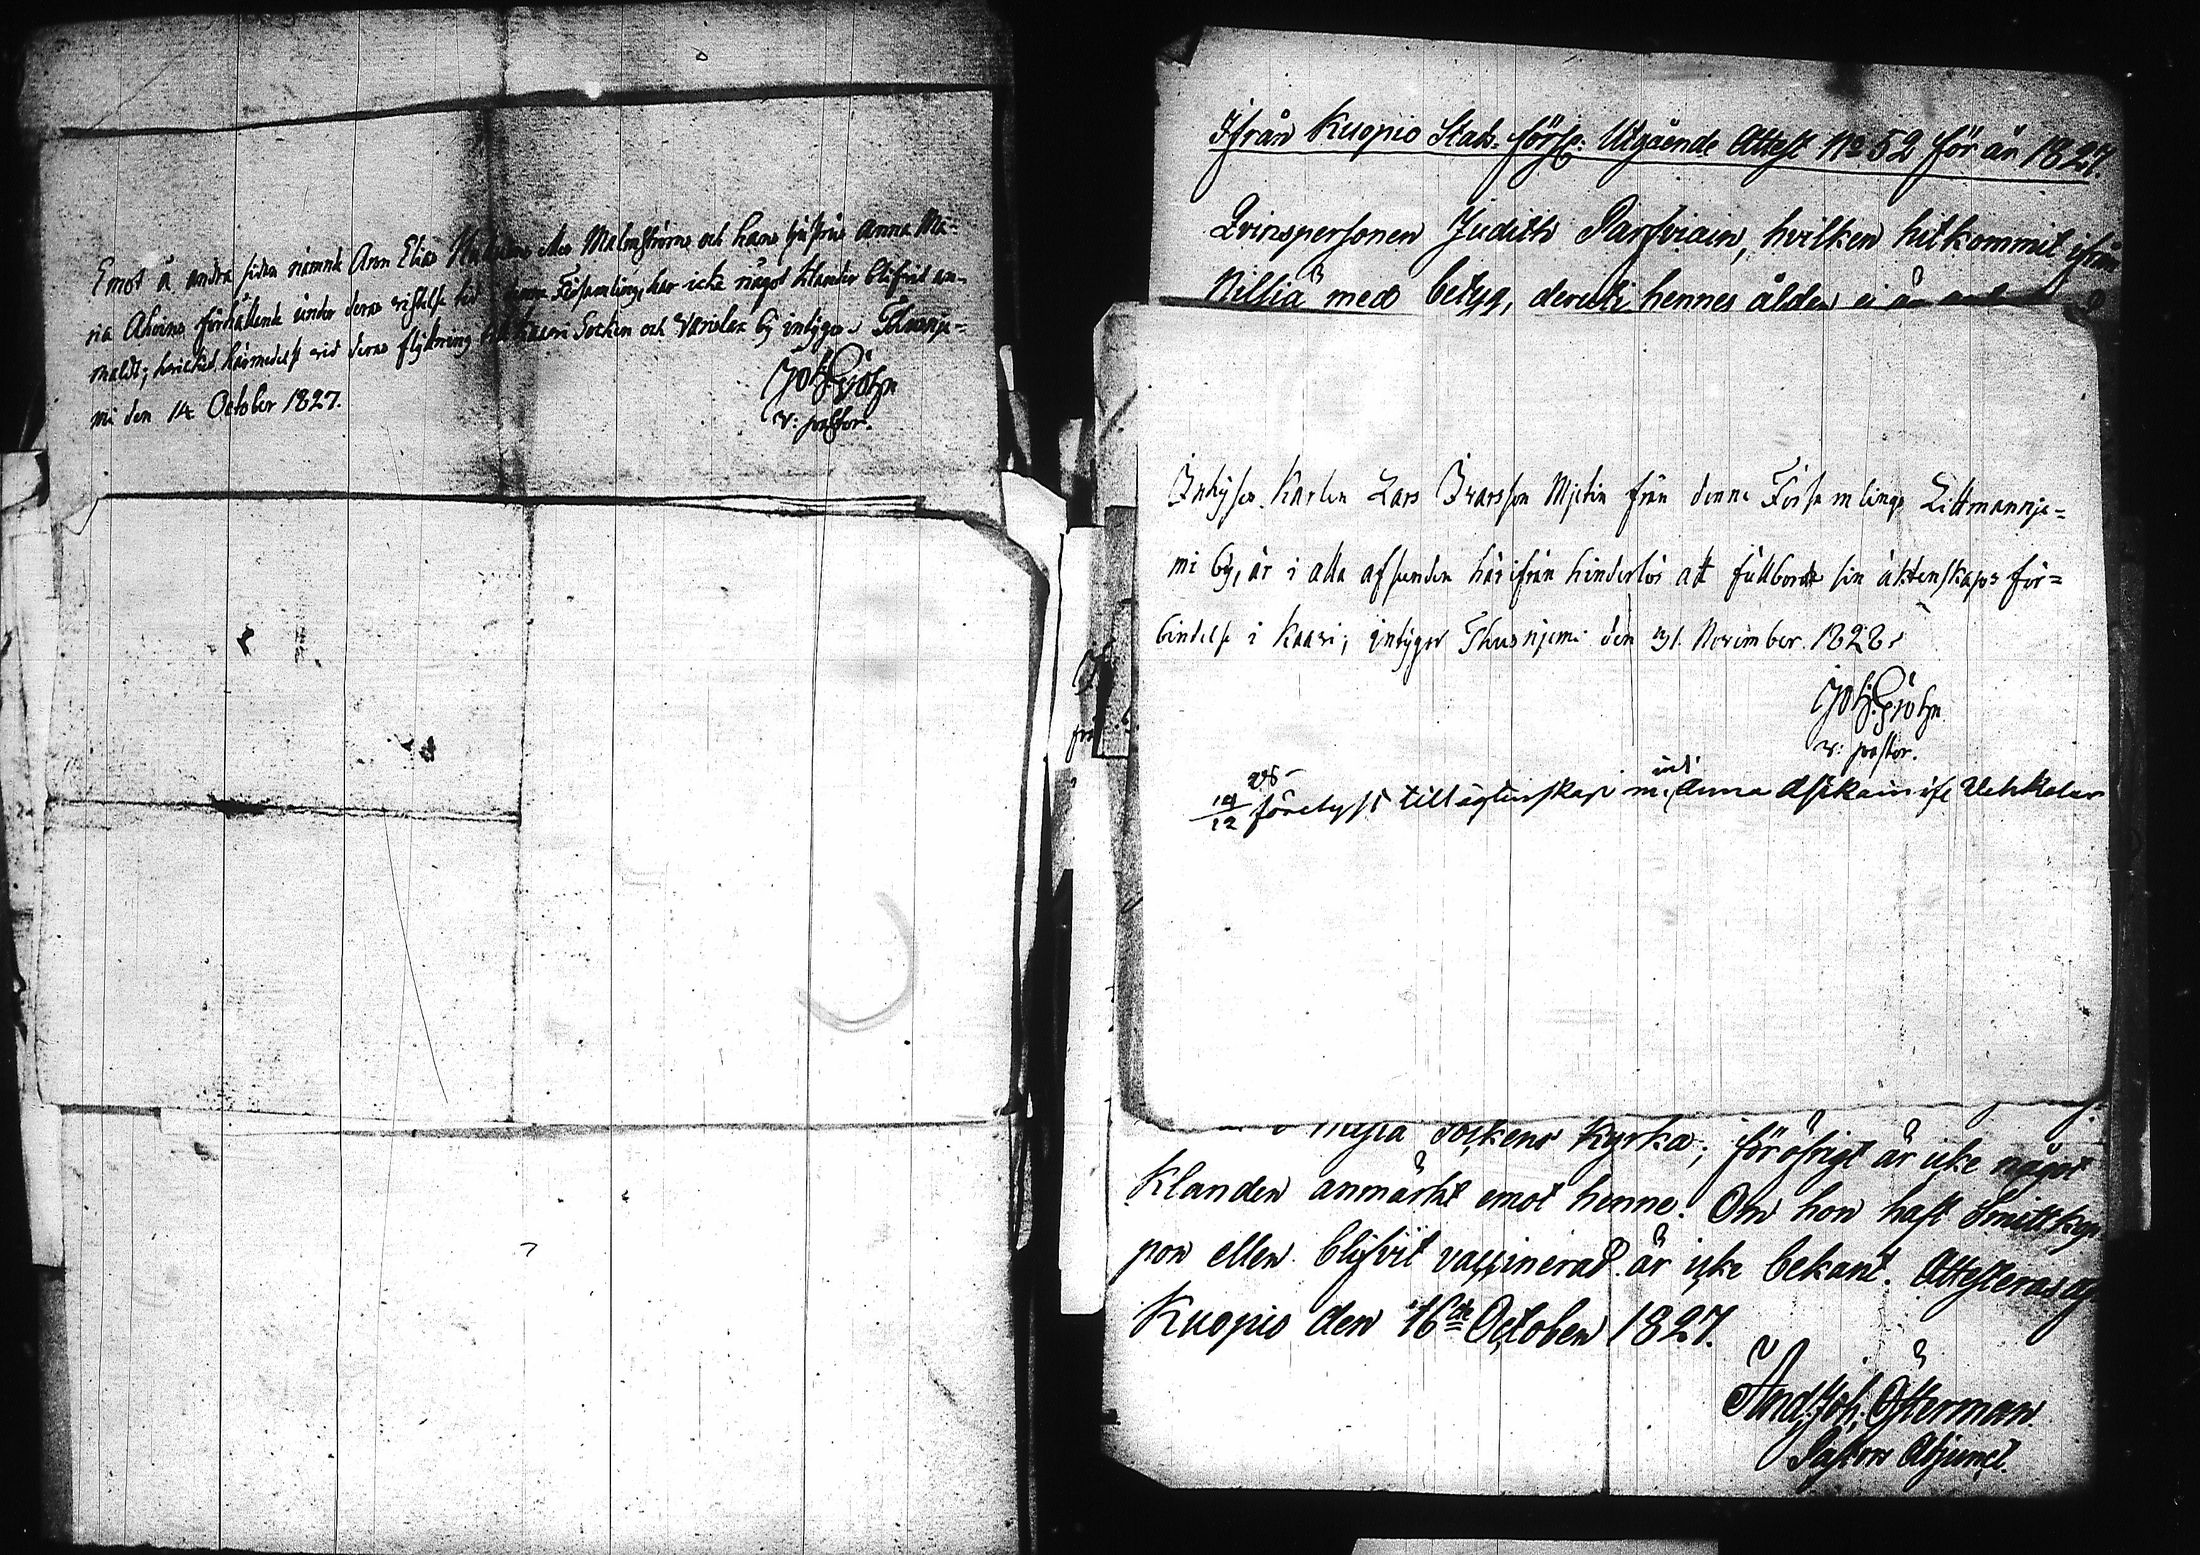 Emot å andra sidan nämnde Aron Elias eller Malmströms och hans hustrus Anna Ma-
ria Ahvins förhållande under deras vistelse tid i denna Församling, har icke något klander blifvit an-
mäldt; hvilket härmedelst vid deras flyttning till Kaavi Socken och Varislax by intygas i Thusnje-
mi den 14 October 1827.
Joh. Fröhn
v: pastor.
Ifrån Kuopio Stads-förs: Utgående Attest No 52 för år 1827.
Qvinspersonen Judith Parsviain, hvilken hitkommit ifrån
Nilsiä med betyg, deruti hennes ålder ej är
Inhyses Karlen Lars Ivarsson Mjetin från denne Församlings Littmannje-
mi by, är i alla afseenden härifrån hinderlös att fullborda sin äktenskaps för-
bindelse i Kaavi; intygar Thusnjemi den 31. November. 1828.
Joh. Fröhn
v: pastor.
14/12 förelyst till ägtenskap m. Anna Asikain ifr Vehkalax
Sockens Kyrka; för öfrigt är icke något
Klander anmärkt emot henne. Om hon haft Smittkop
por eller blifvit vaccinerad är icke bekant. Attesteras af
Kuopio den 16de October 1827.
And: Joh: Österman
Pastors Adjunct.